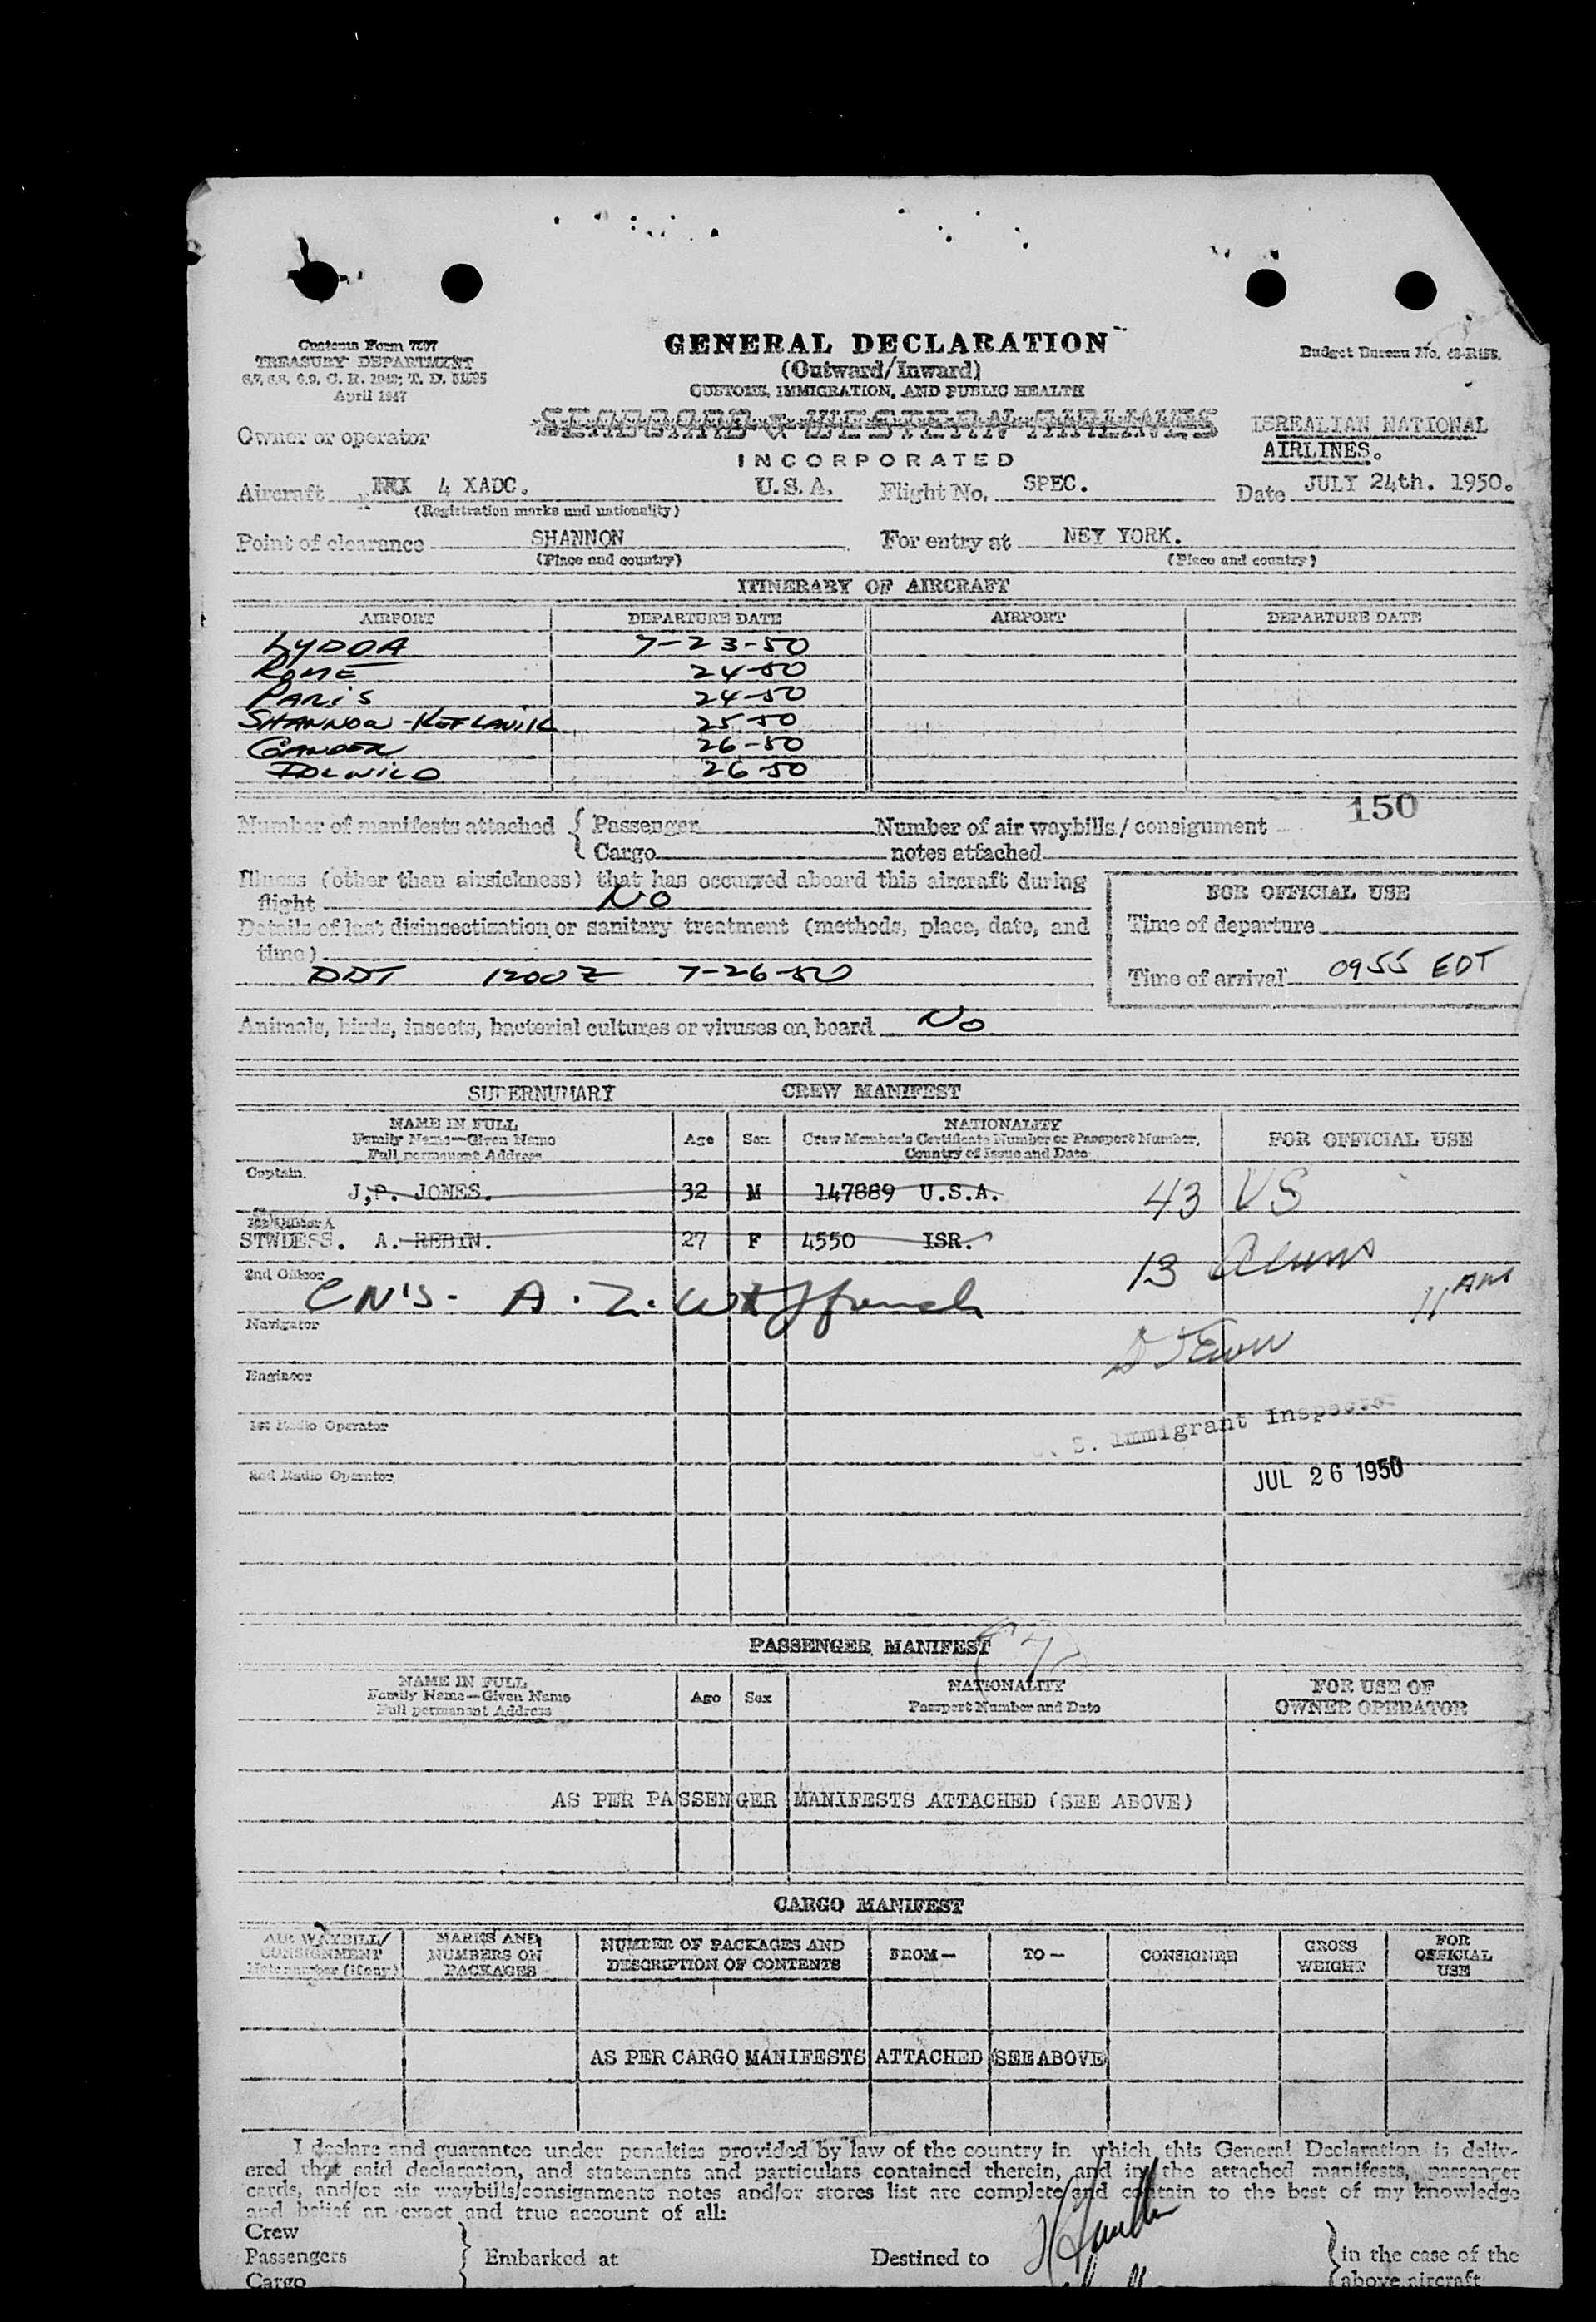 Customs Form 7507
TREASURY DEPARTMENT
April 1947
GENERAL DECLARATION
(Outward/Inward)
CUSTOMS, IMMIGRATION, AND PUBLIC HEALTH
Budget Bureau No.
Owner or operator
SEABOARD & WESTERN AIRLINES
INCORPORATED
ISREALIAN NATIONAL
AIRLINES.
Aircraft 4 XADC. U.S.A. Flight No. SPEC. Date JULY 24th. 1950.
(Registration marks and nationality)
Point of clearance SHANNON For entry at NEY YORK.
(Place and country) (Place and country)
ITINERARY OF AIRCRAFT
AIRPORT DEPARTURE DATE AIRPORT DEPARTURE DATE
LYDDA 7-23-50
ROME 24-50
PARIS 24-50
SHANNON-KEFLAVIK 25-50
GANDER 26-50
IDLWILD 26-50
150
Number of manifests attached { Passenger Number of air waybills / consignment
Cargo notes attached
Illness (other than airsickness) that has occurred aboard this aircraft during
flight NO
Details of last disinsectization or sanitary treatment (methods, place, date, and
time)
DDT 1200Z 7-26-50
FOR OFFICIAL USE
Time of departure
Time of arrival 0955 EDT
Animals, birds, insects, bacterial cultures or viruses on board NO
SUPERNUMARY CREW MANIFEST
NAME IN FULL
Family Name—Given Name
Full permanent Address
Age Sex
NATIONALITY
Crew Member's Certificate Number or Passport Number,
Country of Issue and Date
FOR OFFICIAL USE
Captain.
J,P. JONES. 32 M 147889 U.S.A. 43 US
STWDESS. A. REBIN. 27 F 4550 ISR. 13 Aliens
2nd Officer
11 AM
Navigator
Engineer
1st Radio Operator
U. S. Immigrant Inspector
2nd Radio Operator
JUL 26 1950
PASSENGER MANIFEST
NAME IN FULL
Family Name—Given Name
Full permanent Address
Age Sex
NATIONALITY
Passport Number and Date
FOR USE OF
OWNER OPERATOR
AS PER PASSENGER MANIFESTS ATTACHED (SEE ABOVE)
CARGO MANIFEST
AIR WAYBILL/
CONSIGNMENT
Note number (if any)
MARKS AND
NUMBERS ON
PACKAGES
NUMBER OF PACKAGES AND
DESCRIPTION OF CONTENTS
FROM— TO— CONSIGNEE
GROSS
WEIGHT
FOR
OFFICIAL
USE
AS PER CARGO MANIFESTS ATTACHED SEE ABOVE
I declare and guarantee under penalties provided by law of the country in which this General Declaration is deliv-
ered that said declaration, and statements and particulars contained therein, and in the attached manifests, passenger
cards, and/or air waybills/consignments notes and/or stores list are complete and contain to the best of my knowledge
and belief an exact and true account of all:
Crew
Passengers } Embarked at Destined to } in the case of the
Cargo above aircraft